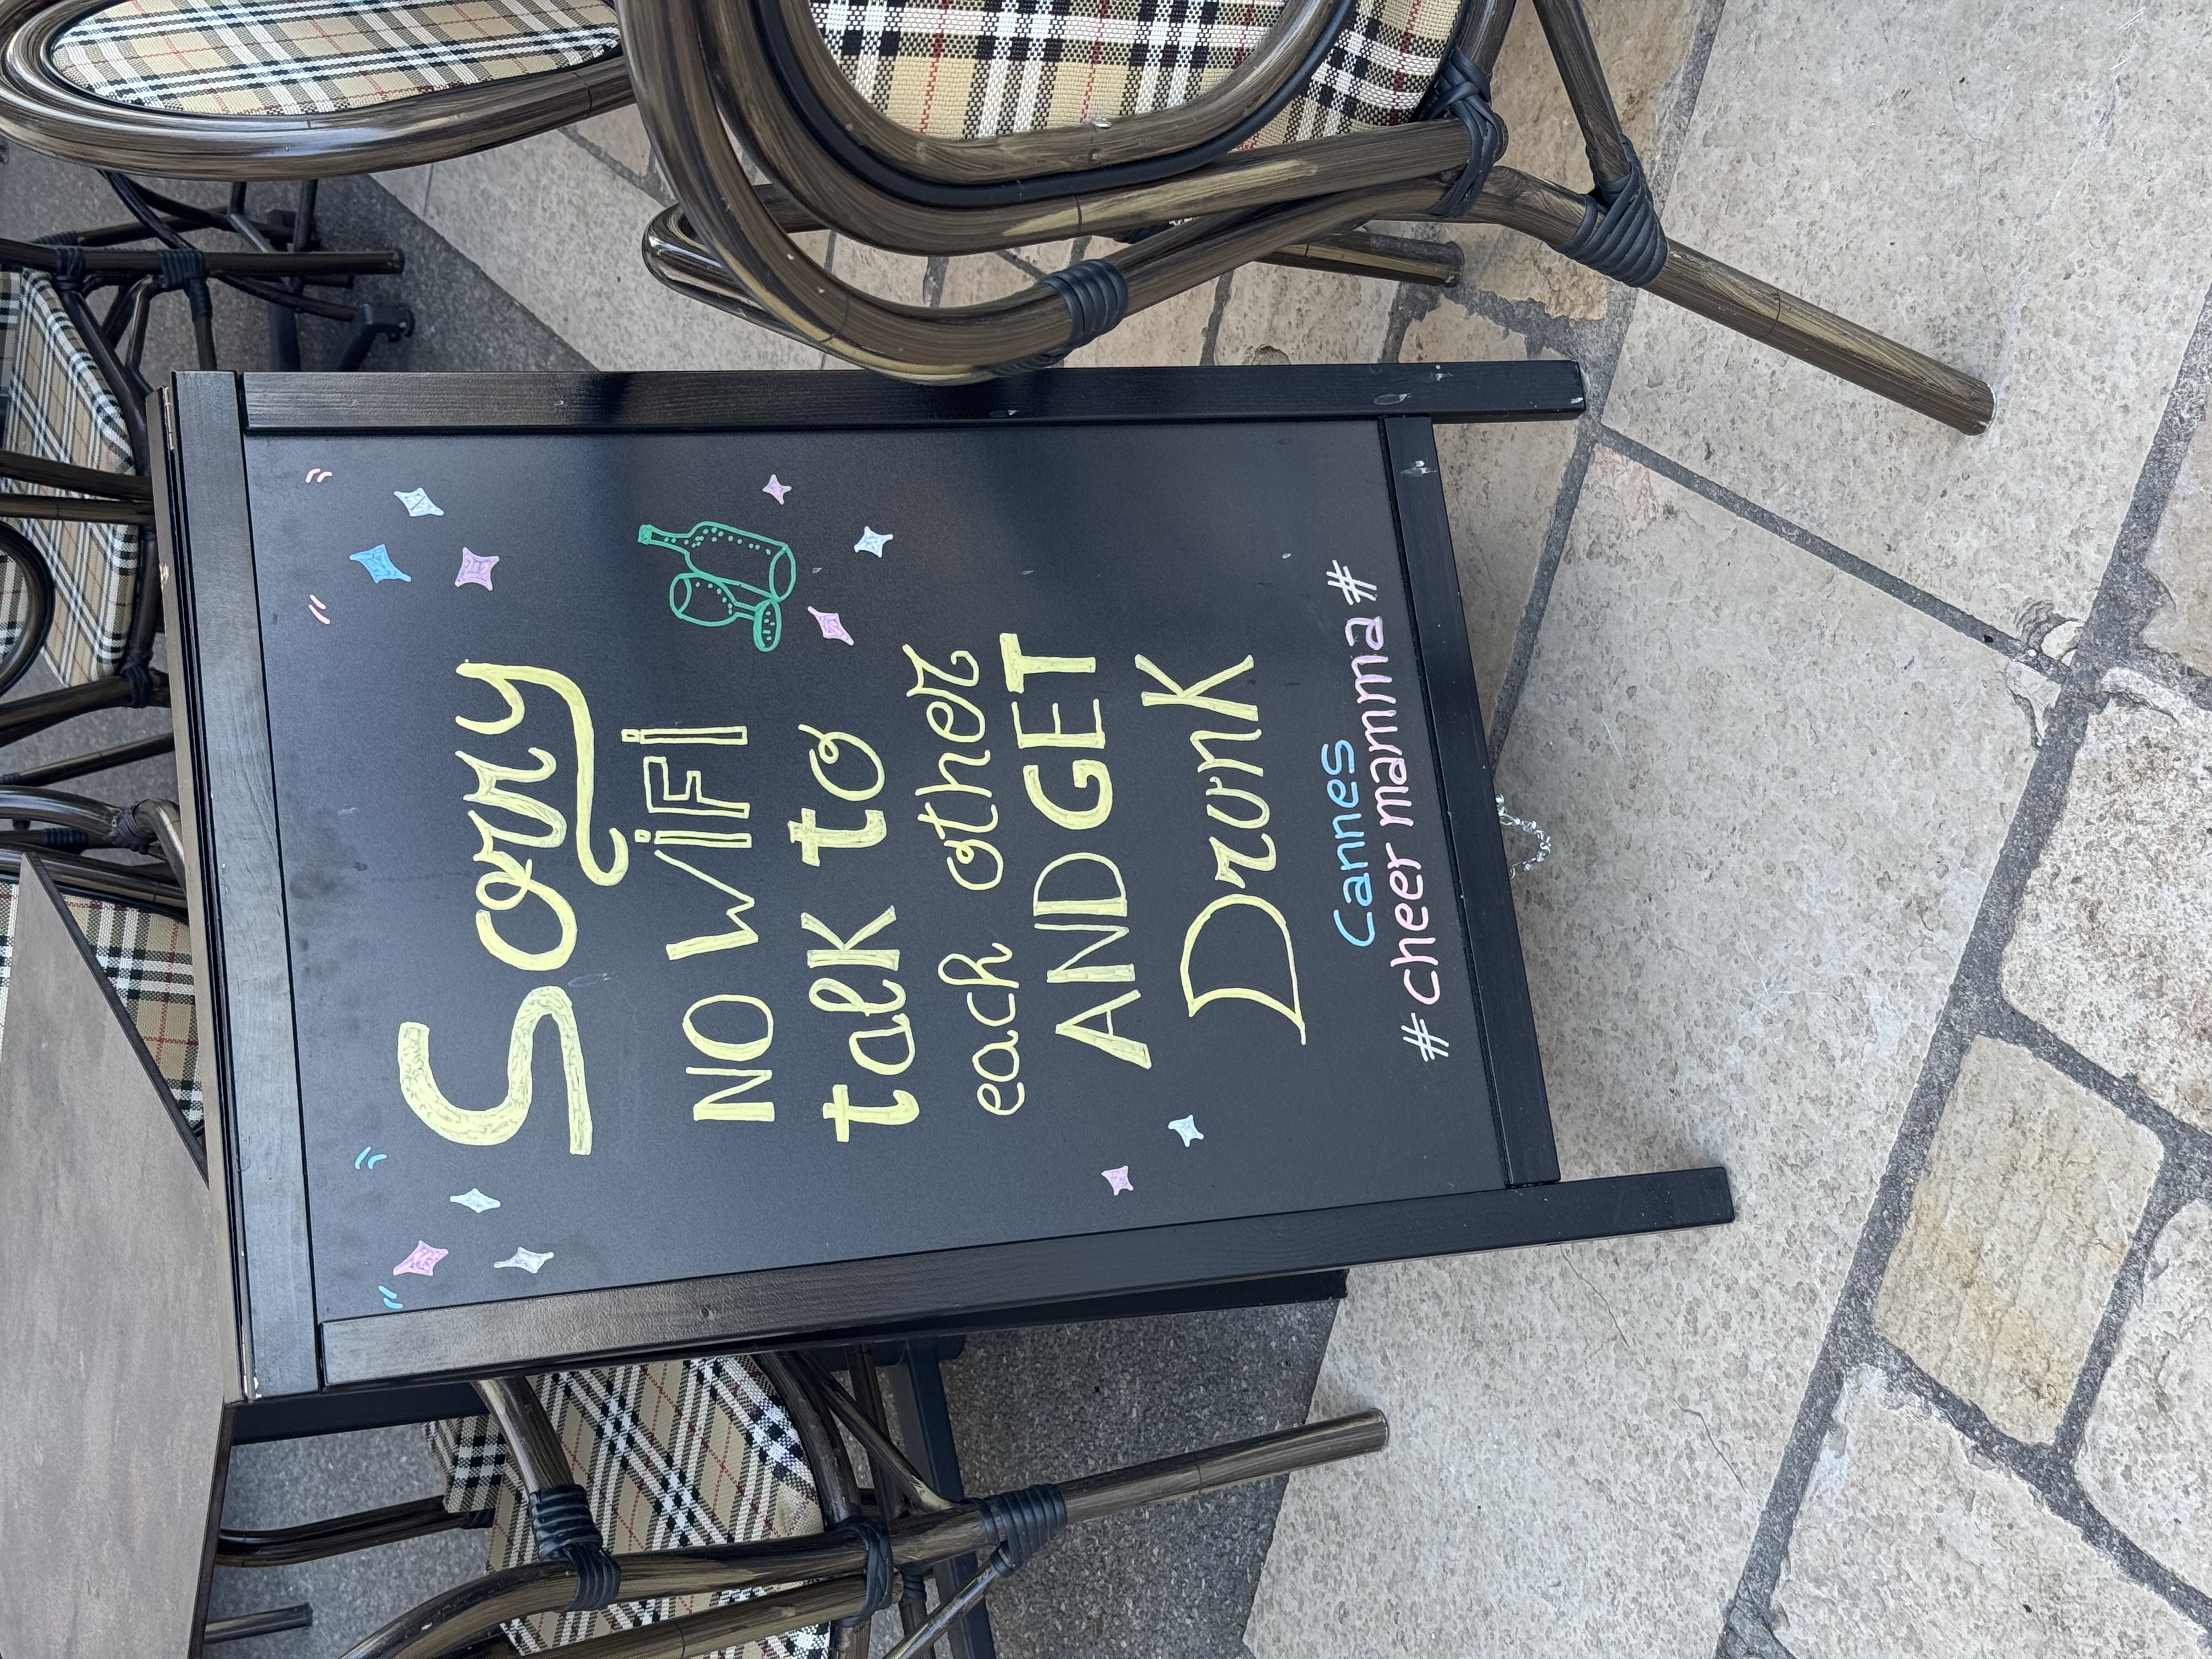 Sorry
NO WiFi
talk to
each other
AND GET
Drunk
Cannes
# cheer mamma #